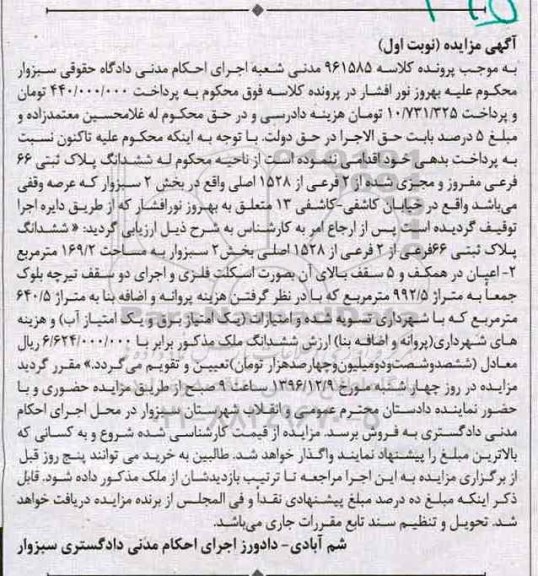 آگهی مزایده (نوبت اول)
به موجب پرونده کلاسه ۹۶۱۵۸۵ مدنی شعبه اجرای احکام مدنی دادگاه حقوقی سبزوار
محکوم علیه بهروز نور افشار در پرونده کلاسه فوق محکوم به پرداخت ۴۴۰/۰۰۰/۰۰۰ تومان
و پرداخت ۱۰/۷۳۱/۳۲۵ تومان هزینه دادرسی و در حق محکوم له غلامحسین معتمدزاده و
مبلغ ۵ درصد بابت حق الاجرا در حق دولت. با توجه به اینکه محکوم علیه تاکنون نسبت
به پرداخت بدهی خود اقدامی ننموده است از ناحیه محکوم له ششدانگ پلاک ثبتی ۶۶
فرعی مفروز و مجزی شده از ۲ فرعی از ۱۵۲۸ اصلی واقع در بخش ۲ سبزوار که عرصه وقفی
می‌باشد واقع در خیابان کاشفی-کاشفی ۱۳ متعلق به بهروز نورافشار که از طریق دایره اجرا
توقیف گردیده است پس از ارجاع امر به کارشناس به شرح ذیل ارزیابی گردید: « ششدانگ
پلاک ثبتی ۶۶فرعی از ۲ فرعی از ۱۵۲۸ اصلی بخش۲ سبزوار به مساحت ۱۶۹/۲ مترمربع
۲- اعیان در همکف و ۵ سقف بالای آن بصورت اسکلت فلزی و اجرای دو سقف تیرچه بلوک
جمعاً به متراژ ۹۹۲/۵ مترمربع که با در نظر گرفتن هزینه پروانه و اضافه بنا به متراژ ۶۴۰/۵
مترمربع که با شهرداری تسویه شده و امتیازات (یک امتیاز برق و یک امتیاز آب) و هزینه
های شهرداری(پروانه و اضافه بنا) ارزش ششدانگ ملک مذکور برابر با ۶/۶۲۴/۰۰۰/۰۰۰ ریال
معادل (ششصدوشصت‌ودومیلیون‌وچهارصدهزار تومان)تعیین و تقویم می‌گردد.» مقرر گردید
مزایده در روز چهارشنبه مورخ ۱۳۹۶/۱۲/۹ ساعت ۹ صبح از طریق مزایده حضوری و با
حضور نماینده دادستان محترم عمومی و انقلاب شهرستان سبزوار در محل اجرای احکام
مدنی دادگستری به فروش برسد. مزایده از قیمت کارشناسی شده شروع و به کسانی که
بالاترین مبلغ را پیشنهاد نمایند واگذار خواهد شد. طالبین به خرید می توانند پنج روز قبل
از برگزاری مزایده به این اجرا مراجعه تا ترتیب بازدیدشان از ملک مذکور داده شود. قابل
ذکر اینکه مبلغ ده درصد مبلغ پیشنهادی نقداً و فی المجلس از برنده مزایده دریافت خواهد
شد. تحویل و تنظیم سند تابع مقررات جاری می‌باشد.
شم آبادی- دادورز اجرای احکام مدنی دادگستری سبزوار